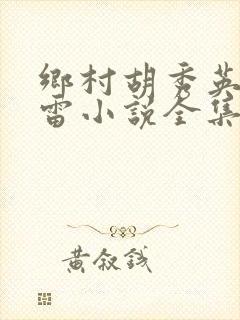 鄉村胡秀英
雷小說全集
黃敘錢